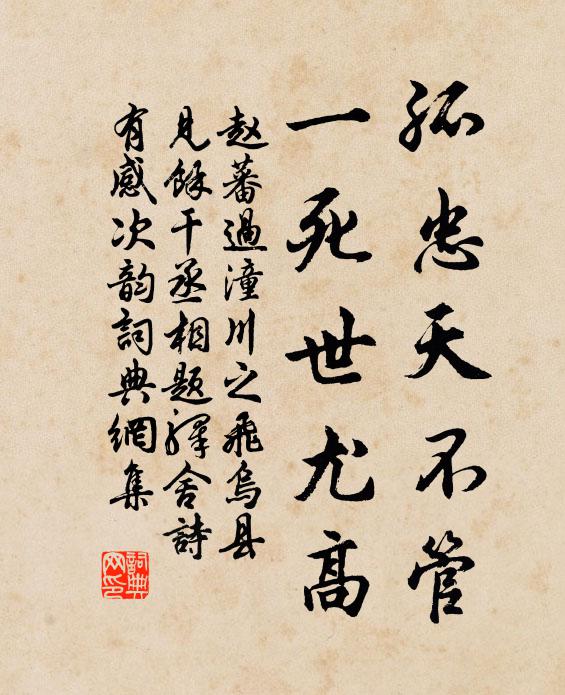 孤忠天不管
一死世尤高
赵蕃過潼川之飛烏县
見餘干丞相題驛舍詩
有感次韵詞典網集
詞典
网印